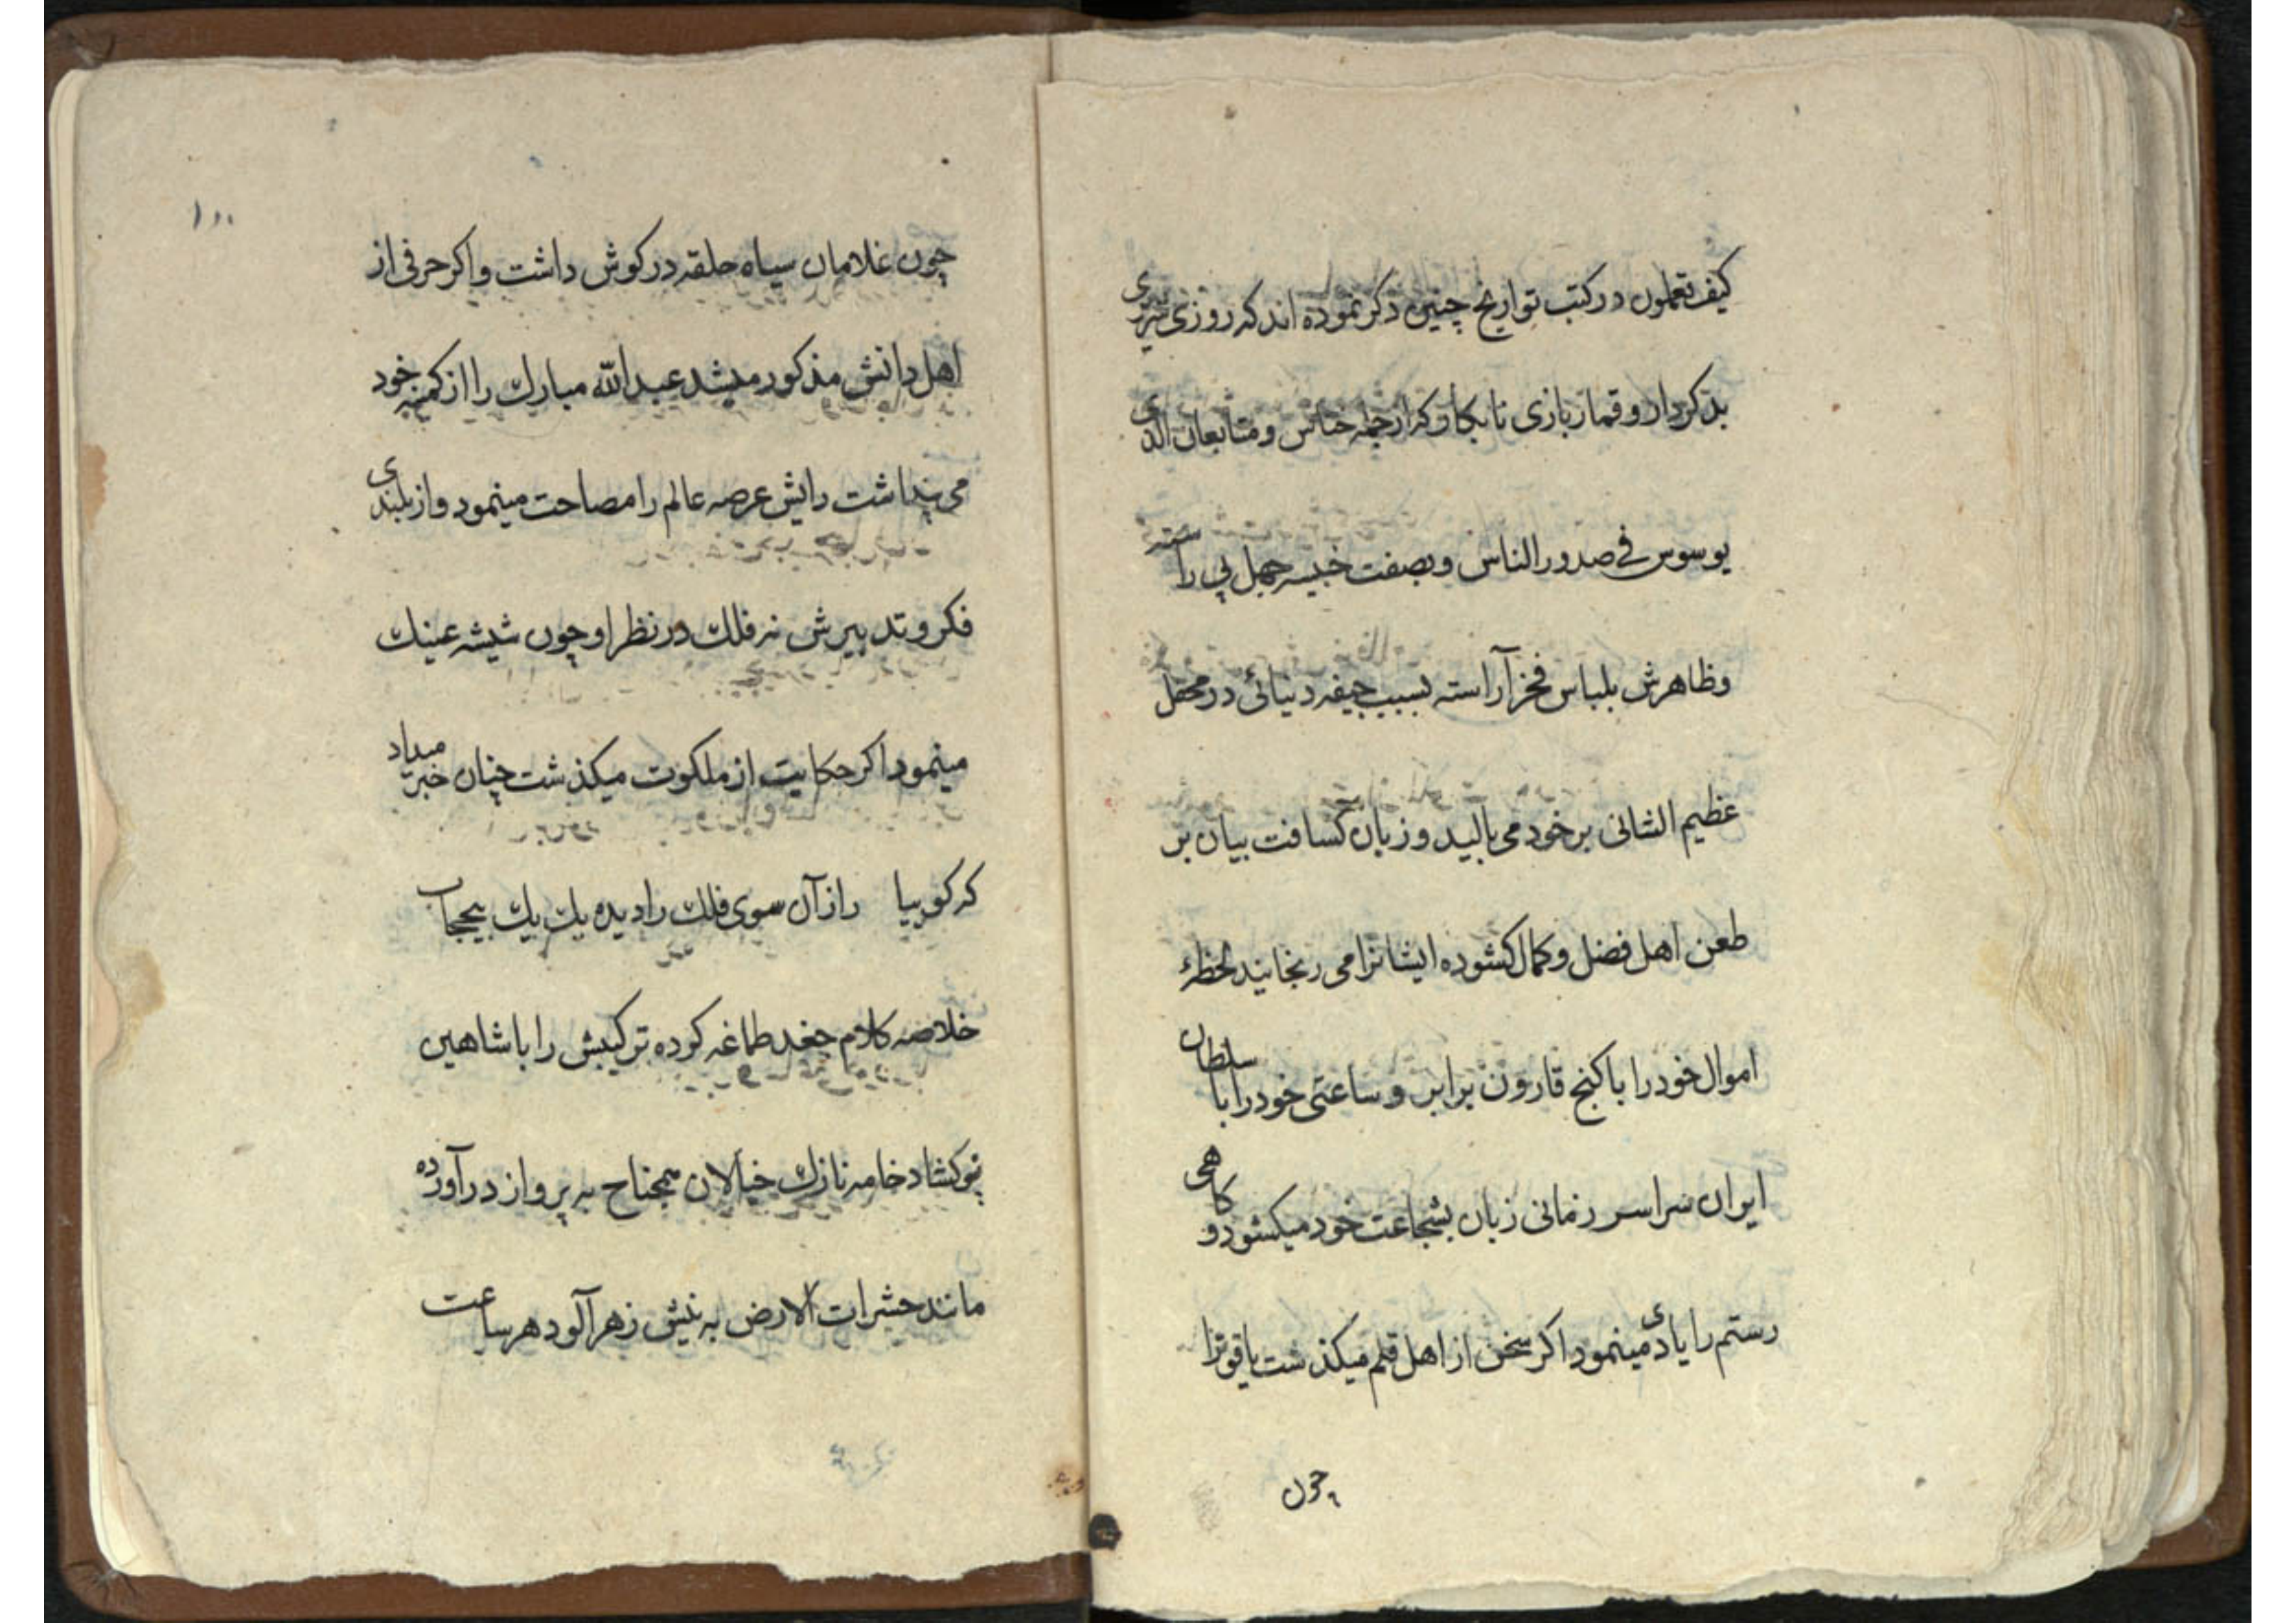 کیف تعلمون در کتب تواریخ چنین ذکر نموده اند که روزی
بدکردار و قماربازی نابکار که از جمله خناس و متابعان الذی
یوسوس فی صدور الناس و بصفت خبیسه جهل پی راسته
وظاهرش بلباس فخر آراسته بسبب جیفه دنیائی در محفل
عظیم الشانی بر خود می بالید و زبان کسافت بیان بر
طعن اهل فضل و کمال کشوده ایشانرا می رنجانید لحظهٔ
اموال خود را با کنج قارون برابر و ساعتی خود را با سلطان
ایران سراسر زمانی زبان بشجاعت خود میکشود و کاهی
رستم را یادی مینمود اکر سخن از اهل قلم میکذشت یاقوترا
چون
۱۰۰
چون غلامان سیاه حلقه در کوش داشت و اکر حرفی از
اهل دانش مذکور میشد عبدالله مبارک را از کمینه خود
می پنداشت رایش عرصه عالم را مصاحت مینمود و از بلندی
فکر و تدبیرش نه فلک در نظر او چون شیشه عینک
مینمود اکر حکایت از ملکوت میکذشت چنان خبر میداد
که کوییا راز آن سوی فلک را دیده یک یک بیحجاب
خلاصه کلام جغد طماغه کرده ترکیبش را با شاهین
خامه نازک خیالان همجناح به پرواز در آورده
مانند حشرات الارض به نیش زهرآلود هر ساعت